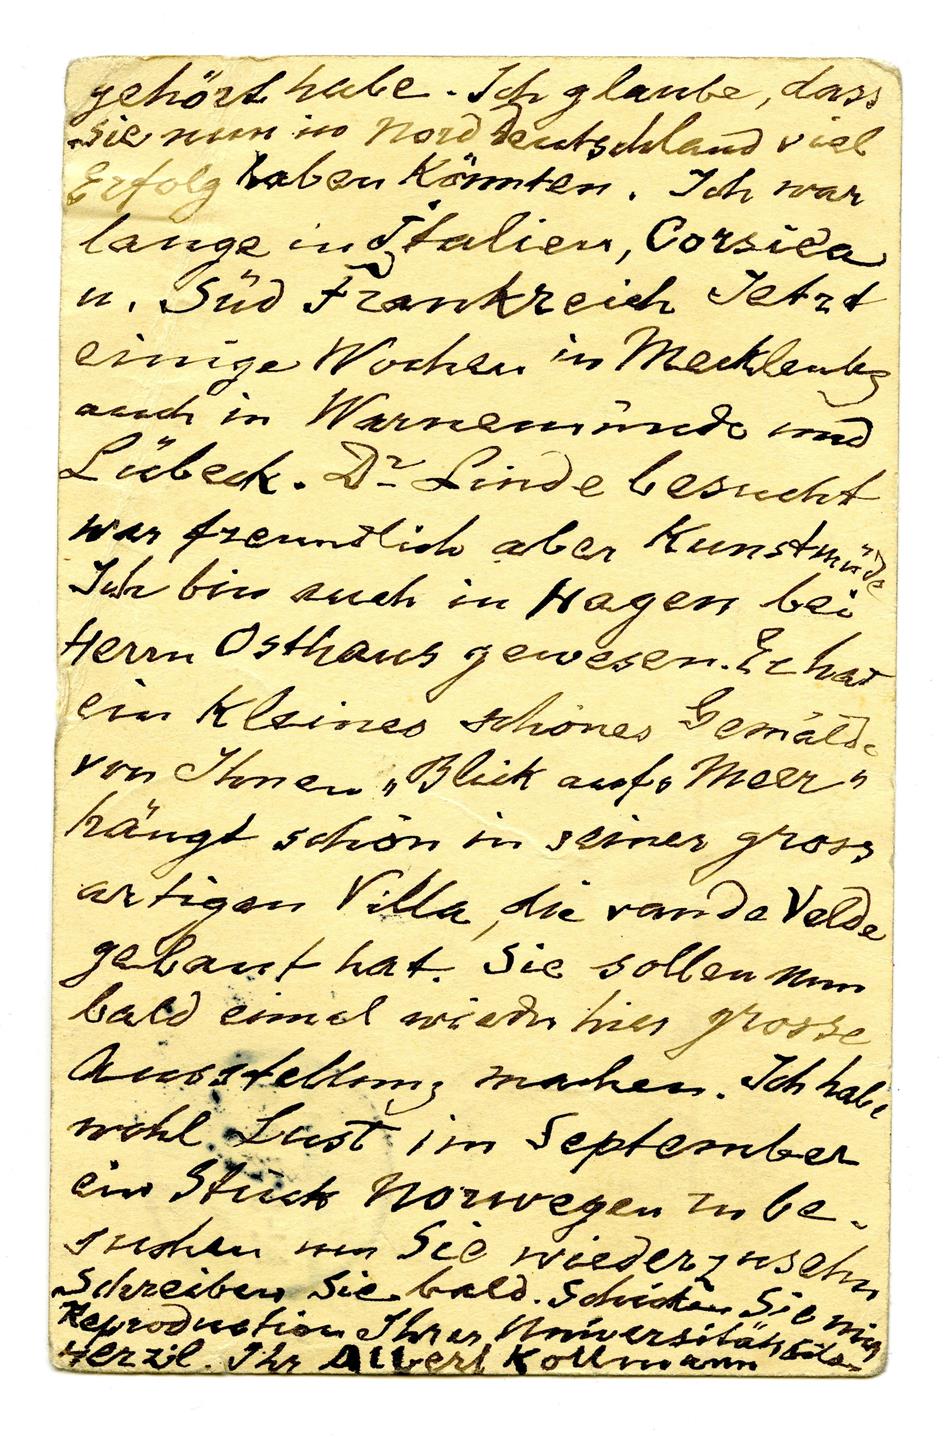 gehört habe. Ich glaube, dass
sie nun in Nord Deutschland viel
Erfolg haben könnten. Ich war
lange in Italien, Corsica
u. Süd Frankreich Jetzt
einige Wochen in Mecklenbg
auch in Warnemünde und
Lübeck. Dr Linde besucht
war freundlich aber Kunstmüde
Ich bin auch in Hagen bei
Herrn Osthaus gewesen. Er hat
ein kleines schönes Gemälde
von Ihnen „Blick aufs Meer"
hängt schön in seiner gross
artigen Villa, die van de Velde
gebaut hat. Sie sollen nun
bald einmal wieder hier grosse
Ausstellung machen. Ich habe
wohl Lust im September
ein Stück Norwegen zu be-
suchen um Sie wiederzusehn
Schreiben Sie bald. Schicken Sie mir
Reproduction Ihrer Universitäts
Herzl. Ihr Albert Kollmann